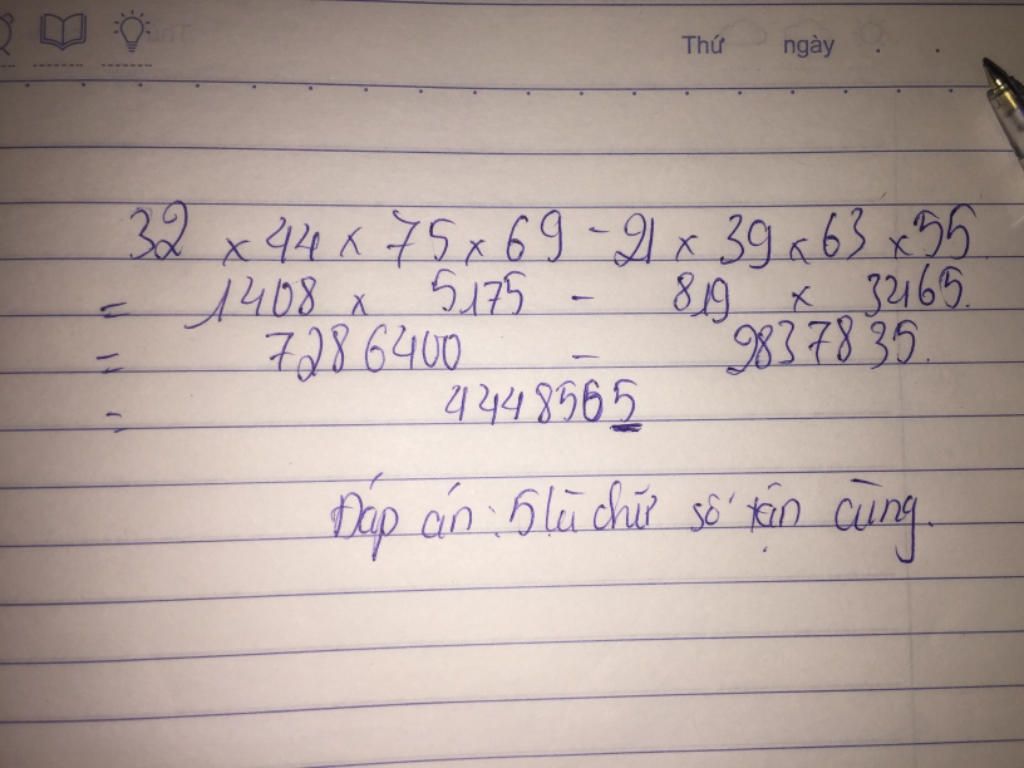 Thứ ngày
32 × 44 × 75 × 69 - 21 × 39 × 63 × 55
= 1408 × 5175 - 819 × 3465.
= 7286400 - 2837835.
= 4448565
Đáp án: 5 là chữ số tận cùng.